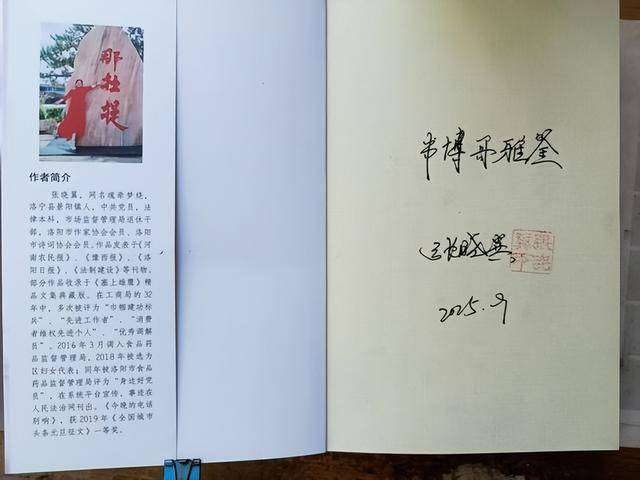 那杜提
作者简介
张晓翼，网名魂牵梦绕，
洛宁县景阳镇人，中共党员，法
律本科，市场监督管理局退休干
部，洛阳市作家协会会员、洛阳
市诗词协会会员。作品发表于《河
南农民报》、《豫西报》、《洛
阳日报》、《法制建设》等刊物。
部分作品收录于《塞上雄鹰》精
品文集典藏版。在工商局的32
年中，多次被评为“巾帼建功标
兵”、“先进工作者”、“消费
者维权先进个人”、“优秀调解
员”。2016年3月调入食品药
品监督管理局，2018年被选为
区妇女代表；同年被洛阳市食品
药品监督管理局评为“身边好党
员”，在系统平台宣传，事迹在
人民法治网刊出。《今晚的电话
别响》，获2019年《全国城市
头条元旦征文》一等奖。
常博哥雅鉴
张晓翼
2025.9